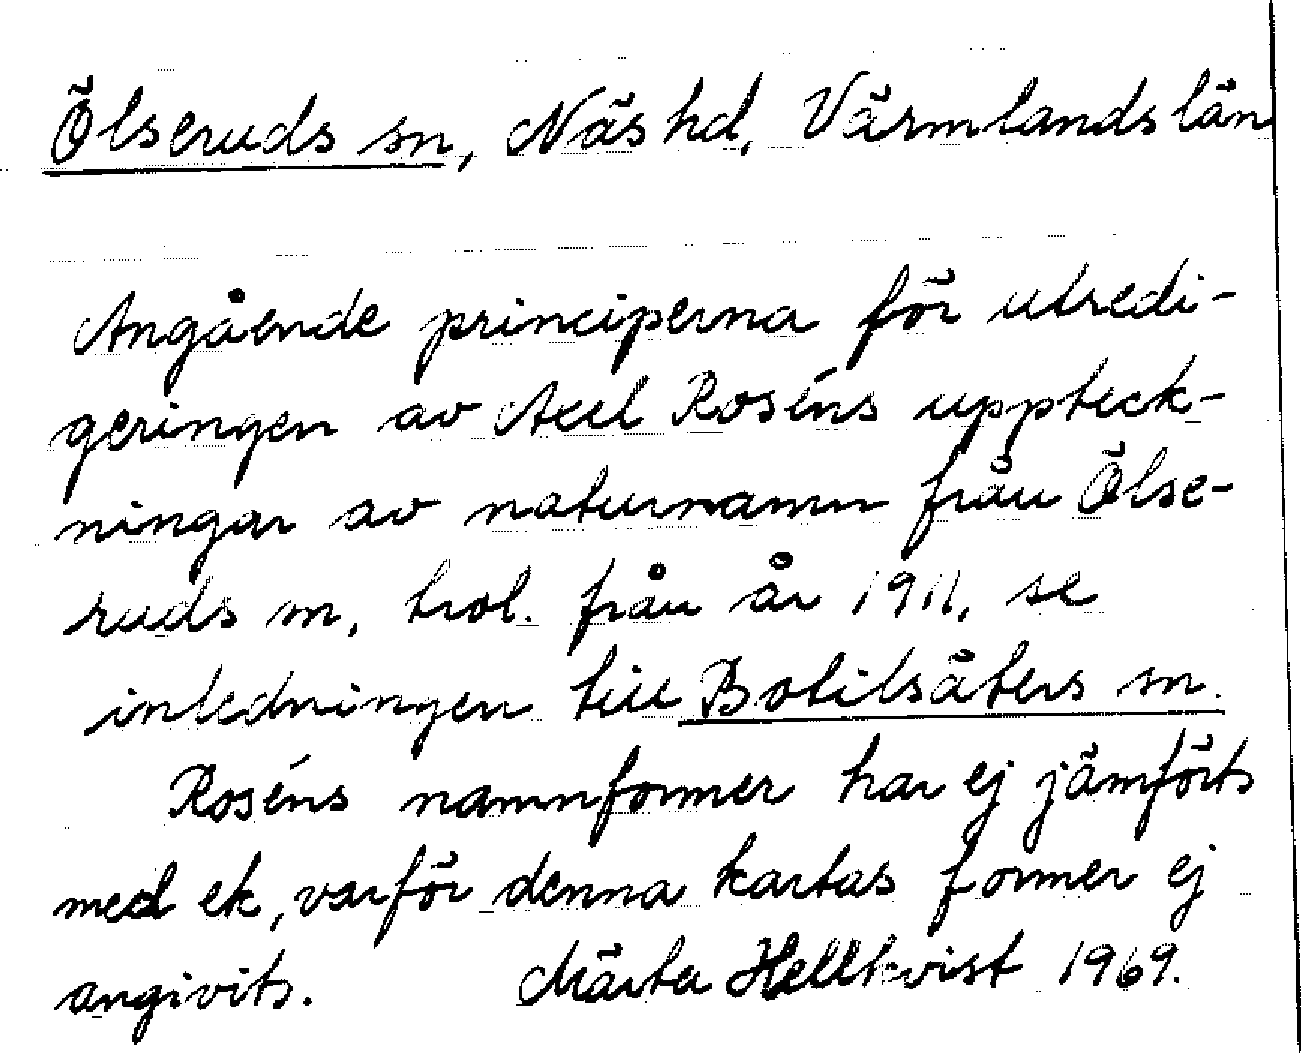 Ölseruds sn, Näs hd, Värmlands län
Angående principerna för utredi-
geringen av Axel Roséns uppteck-
ningar av naturnamn från Ölse-
ruds sn, trol. från år 1911, se
inledningen till Botilsäters sn.
Roséns namnformer har ej jämförts
med ek, varför denna kartas former ej
angivits. Märta Hellkvist 1969.